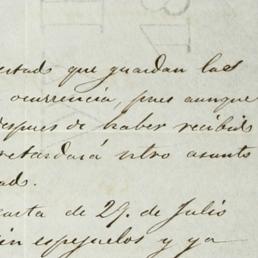 estado que guardan las
ocurrencia, pues aunque
despues de haber recibido
retardará ntro asunto
ado.
carta de 29. de Julio
sin espejuelos y ya